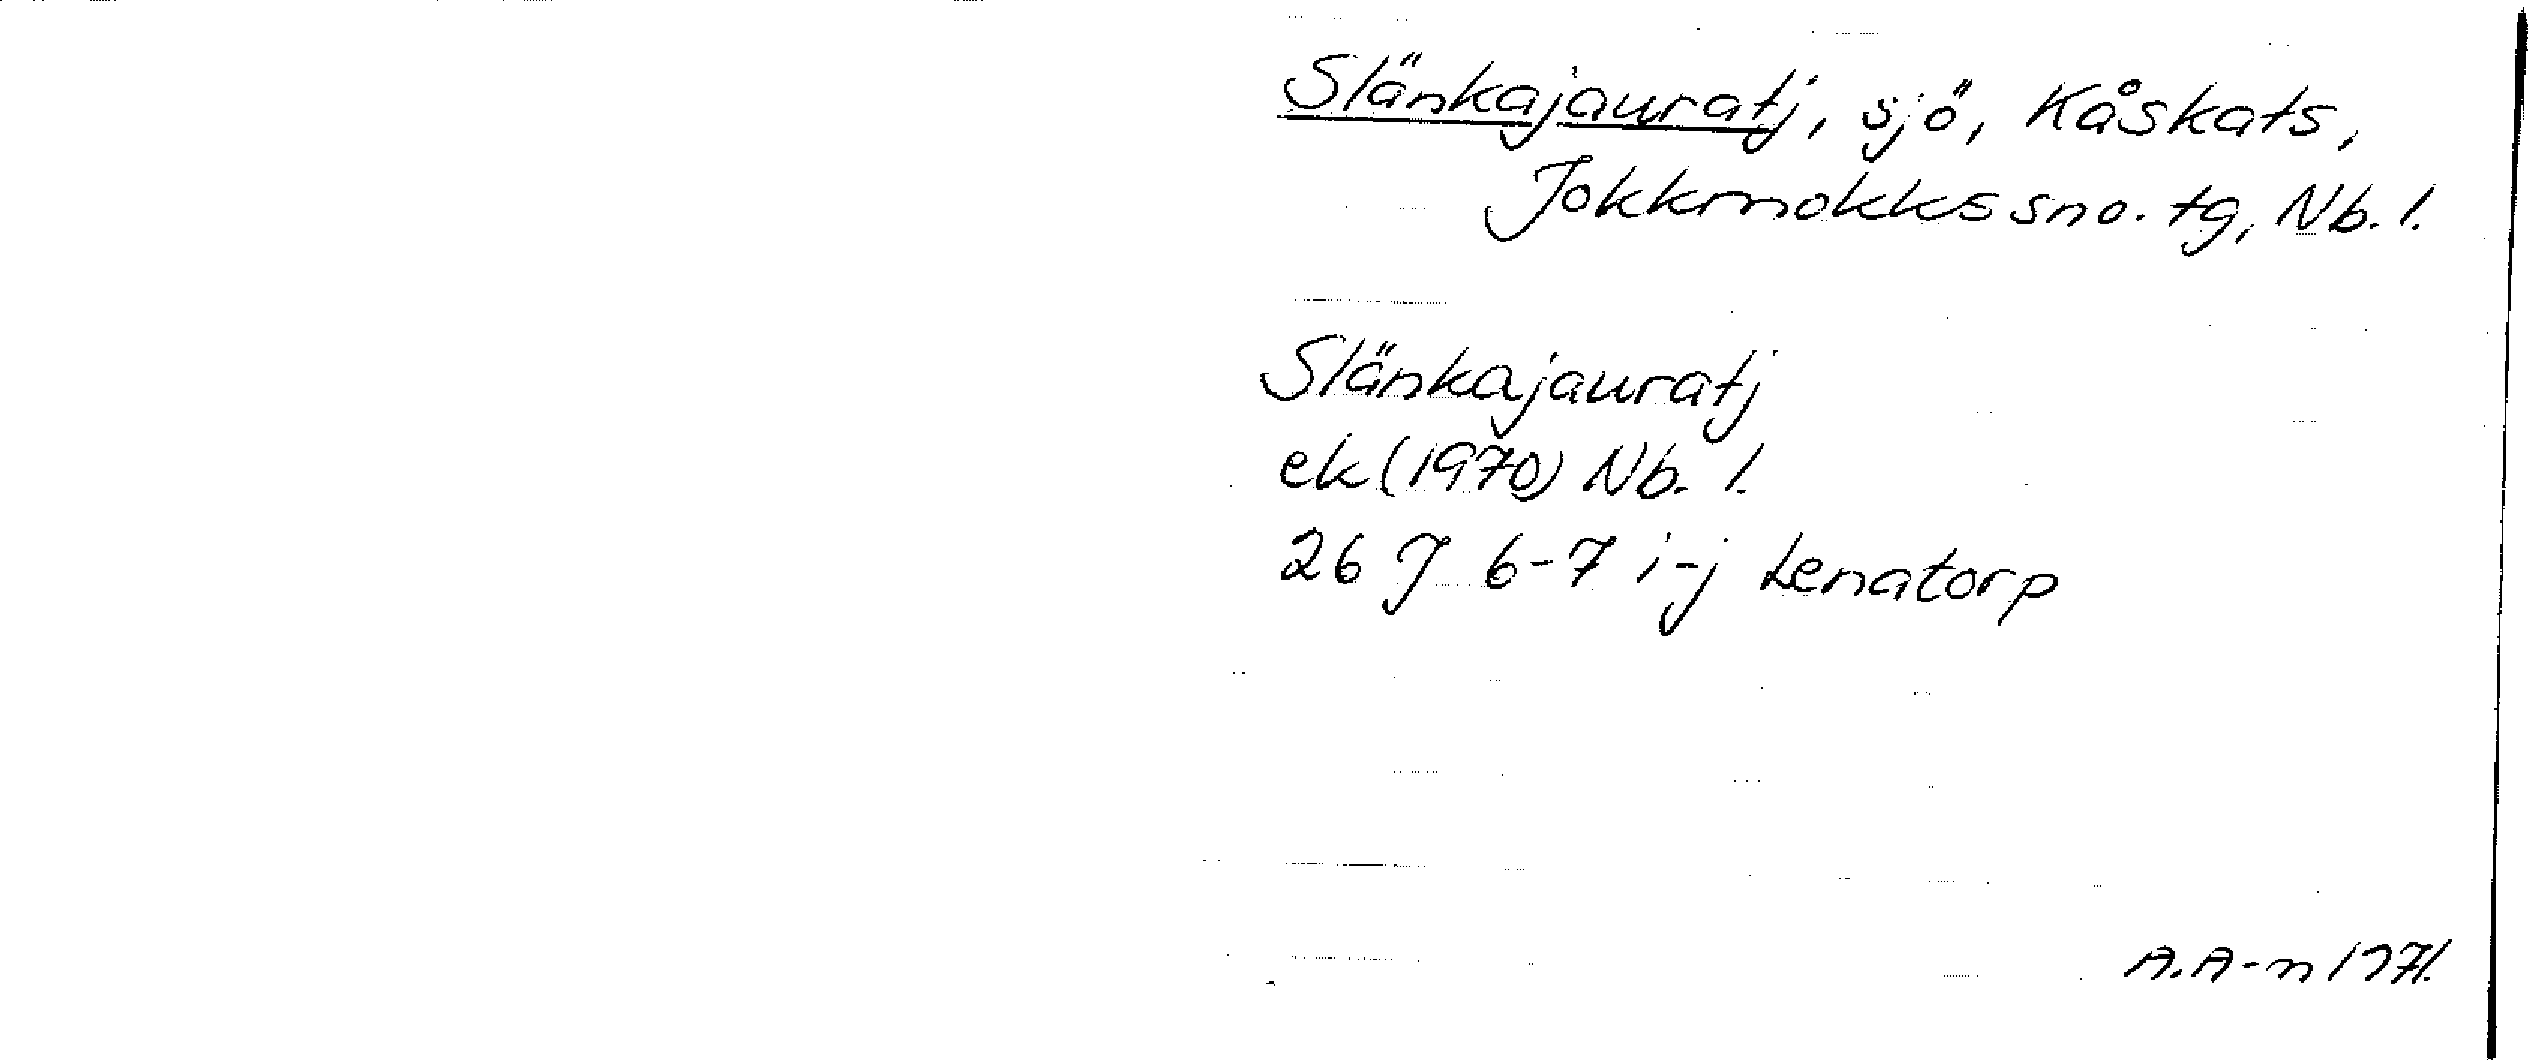 Slänkajauratj, sjö, Kåskats,
Jokkmokks sno. tg, Nb. l.
Slänkajauratj
ek (1970) Nb. l.
26 J 6-7 i-j Lenatorp
A.A-n 1971.